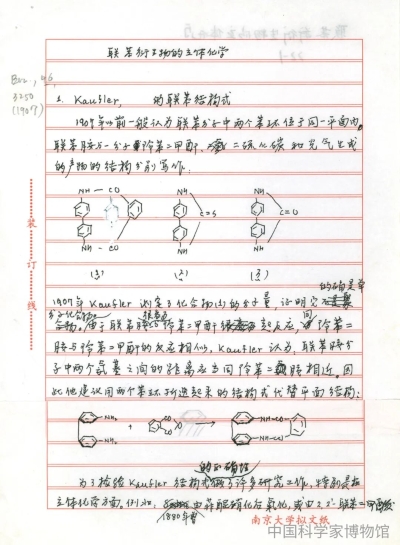 联苯衍生物的立体化学
Ber., 40,
3250
(1907)
1. Kaufler, 的联苯结构式
1907年以前一般认为联苯分子中两个苯环位于同一平面内,
联苯胺与一分子邻苯二甲酐, 二硫化碳和光气生成
的产物的结构分别写作:
NH — CO
NH
NH
C=S
C=O
NH — CO
NH
NH
(1)
(2)
(3)
装
订
线
的确是单
1907年 Kaufler 测定了化合物(1)的分子量, 证明它
分子化合物。
很易
间
由于联苯胺与邻苯二甲酐起反应, 邻苯二
胺与邻苯二甲酐的反应相似, Kaufler 认为, 联苯胺分
子中两个氨基之间的距离应当同邻苯二胺相近, 因
此他建议用两个苯环折迭起来的结构式代替平面结构:
NH₂
NH₂
+
CO
O
CO
NH—CO
NH—CO
的正确性
为了检验 Kaufler 结构式做了许多研究工作, 特别是在
立体化学方面。例如, 由菲醌硝化后氧化, 或由2,2'-联苯二甲酸
1880年曾
南京大学拟文纸
中国科学家博物馆